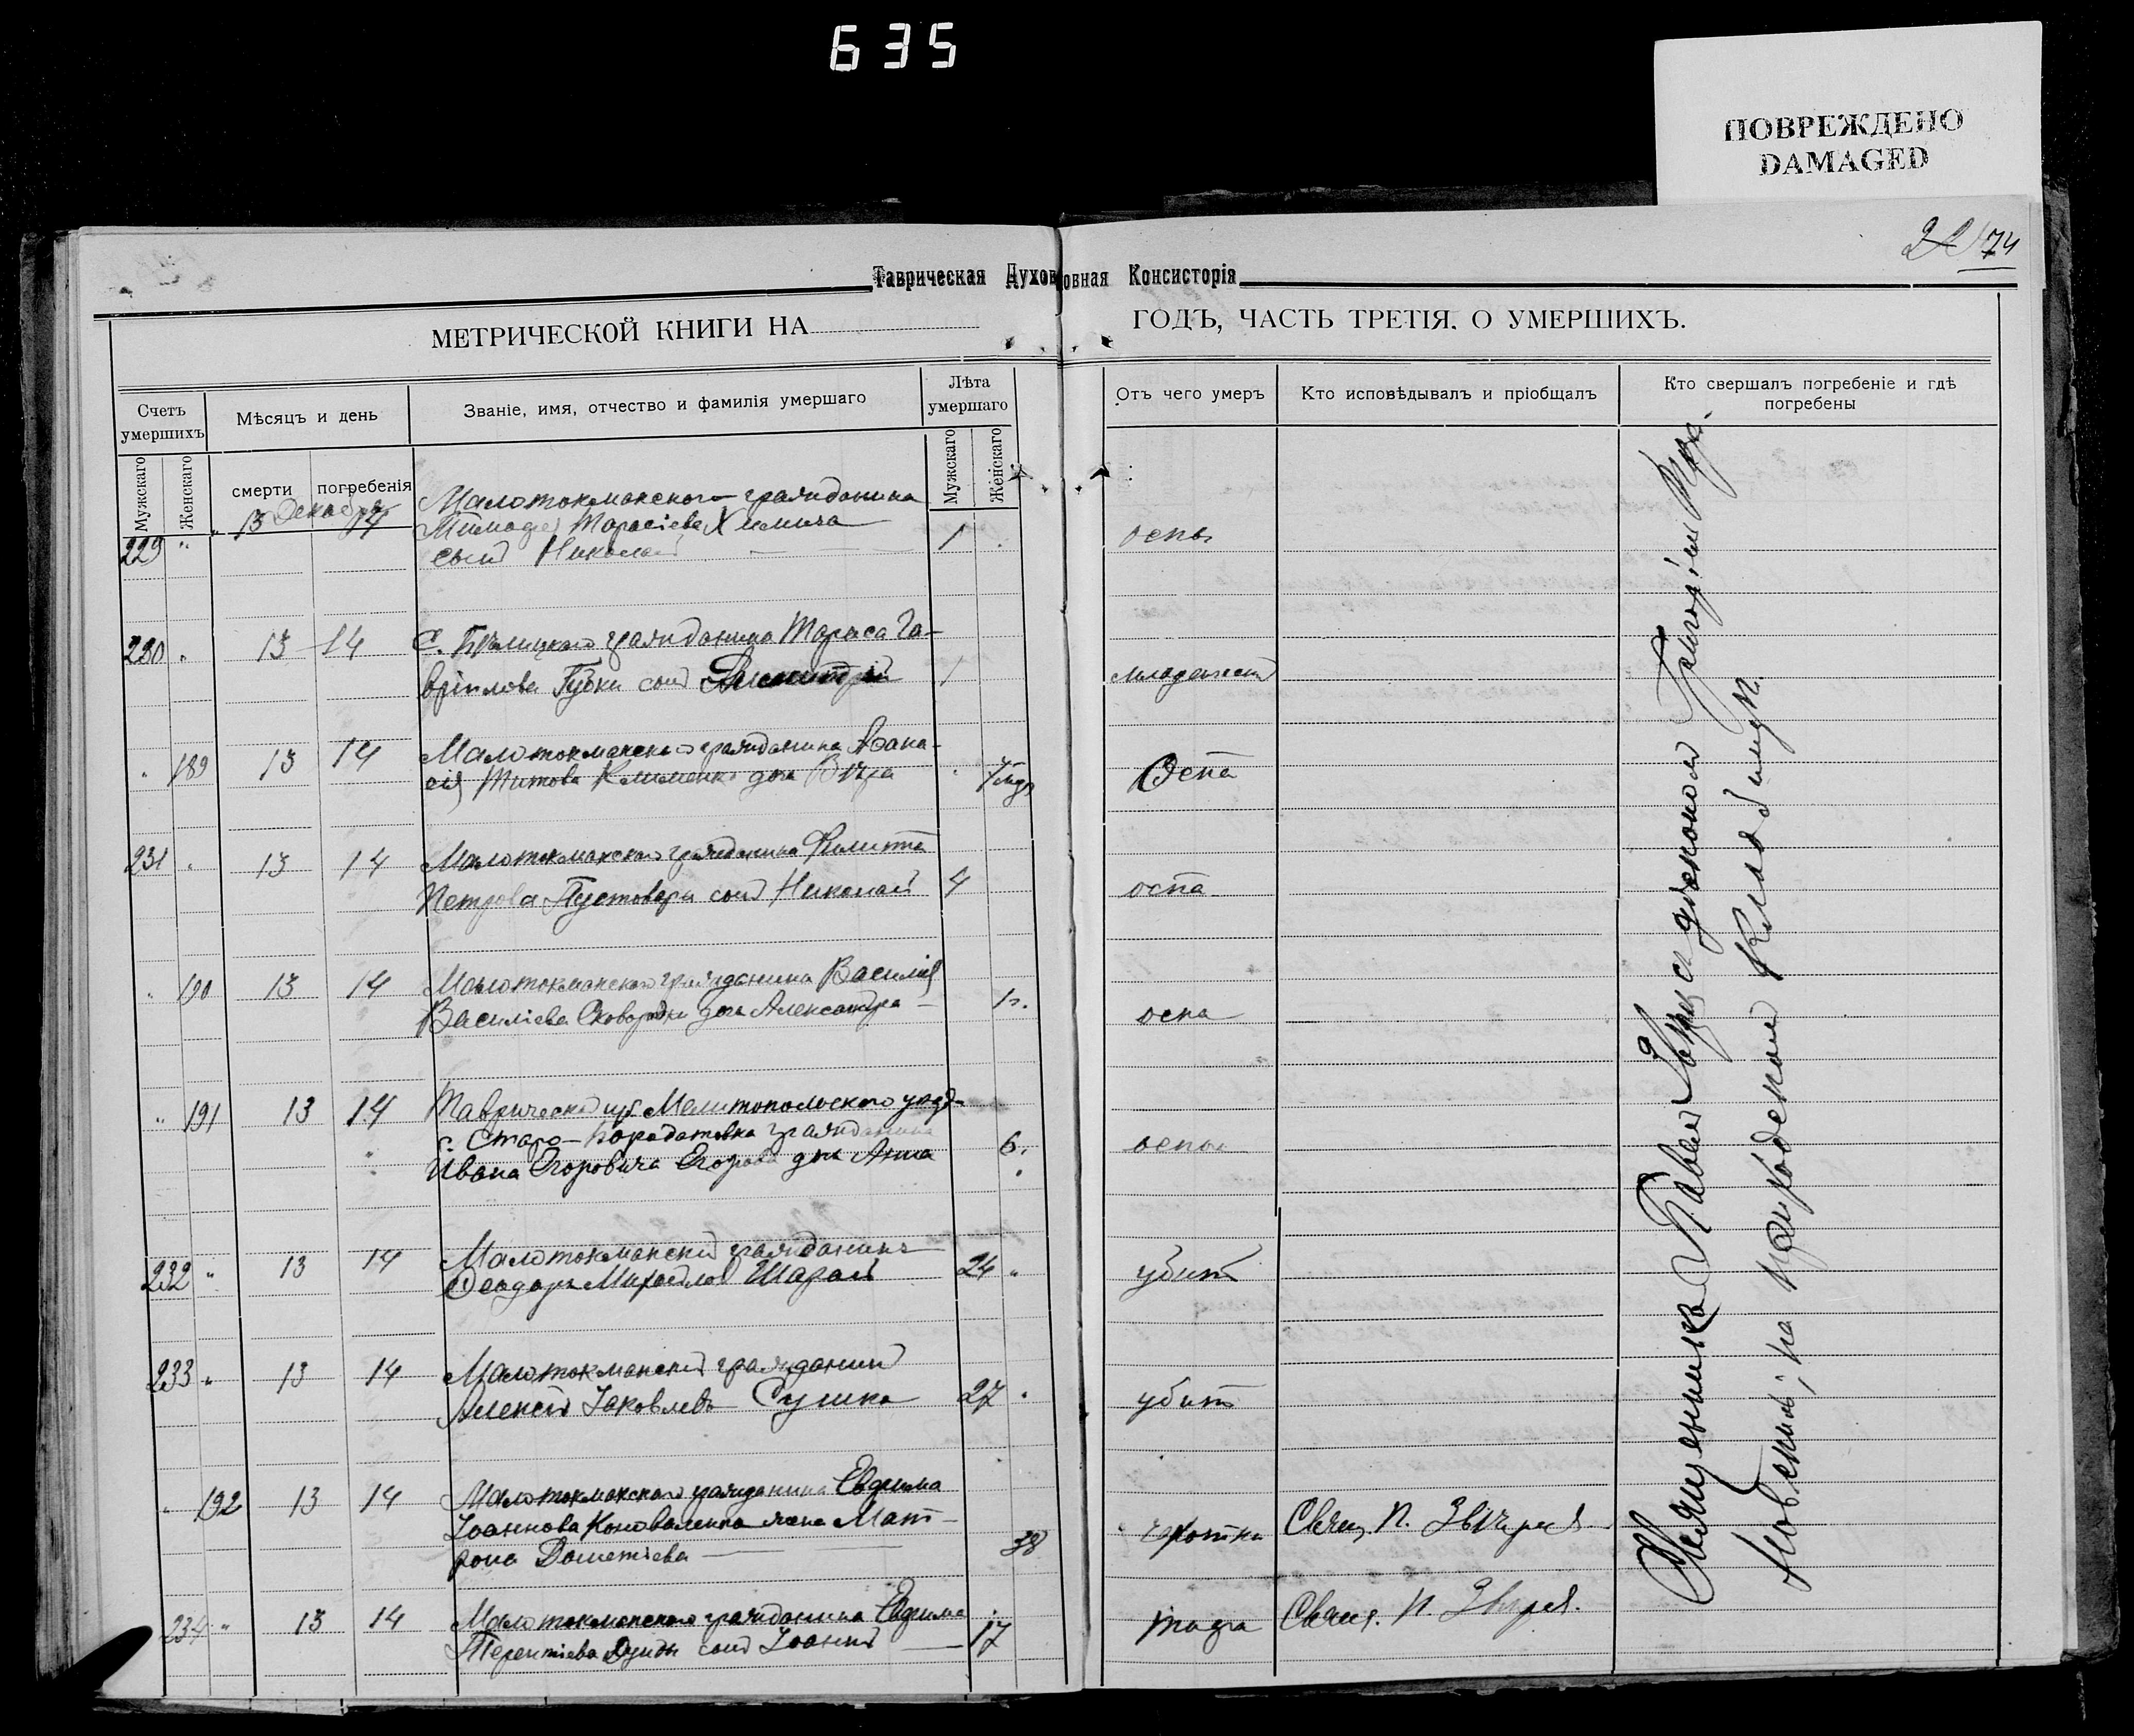 635
ПОВРЕЖДЕНО
DAMAGED
174
Таврическая Духовная Консисторія
МЕТРИЧЕСКОЙ КНИГИ НА ГОДЪ, ЧАСТЬ ТРЕТІЯ, О УМЕРШИХЪ.
Счетъ умершихъ
Мѣсяцъ и день
Званіе, имя, отчество и фамилія умершаго
Лѣта умершаго
Отъ чего умеръ
Кто исповѣдывалъ и пріобщалъ
Кто свершалъ погребеніе и гдѣ
погребены
Мужскаго
Женскаго
смерти
погребенія
Мужскаго
Женскаго
Декабрь
229 " 13 14 Малотокмакского гражданина
Тимофея Тарасіева Химича 1 оспы
сынъ Николай
230 " 13 14 С. гражданина Тараса Га-
вріилова Губки сынъ 1
" 189 13 14 Малотокмакскаго гражданина Афана-
сія Титова Клименко дочь Вѣра Оспа
231 " 13 14 Малотокмакскаго гражданина Филиппа
Петрова Пустовара сынъ Николай 4 оспа
" 190 13 14 Малотокмакскаго гражданина Василія
Василіева Сковородки дочь Александра 1 г. оспа
" 191 13 14 Таврической губ. Мелитопольскаго уѣзд
с. Старо- гражданина
Ивана Егоровича Егорова дочь Анна 6. оспы
232 " 13 14 Малотокмакскій гражданинъ
Ѳеодоръ Михайловъ 24 " убитъ
233 " 13 14 Малотокмакскій гражданинъ
Алексѣй Іаковлевъ Сушко 27 " убитъ
" 192 13 14 Малотокмакскаго гражданина Евфима
Іоаннова Коноваленка жена Мат-
рона Дометіева 38 чахотка Свящ. П. Звѣревъ
234 " 13 14 Малотокмакскаго гражданина Евфима
Терентіева сынъ Іоаннъ 17 Свящ. П. Звѣревъ.
Священникъ Павелъ Звѣревъ съ діакономъ Григоріемъ
на приходскомъ кладбищѣ.